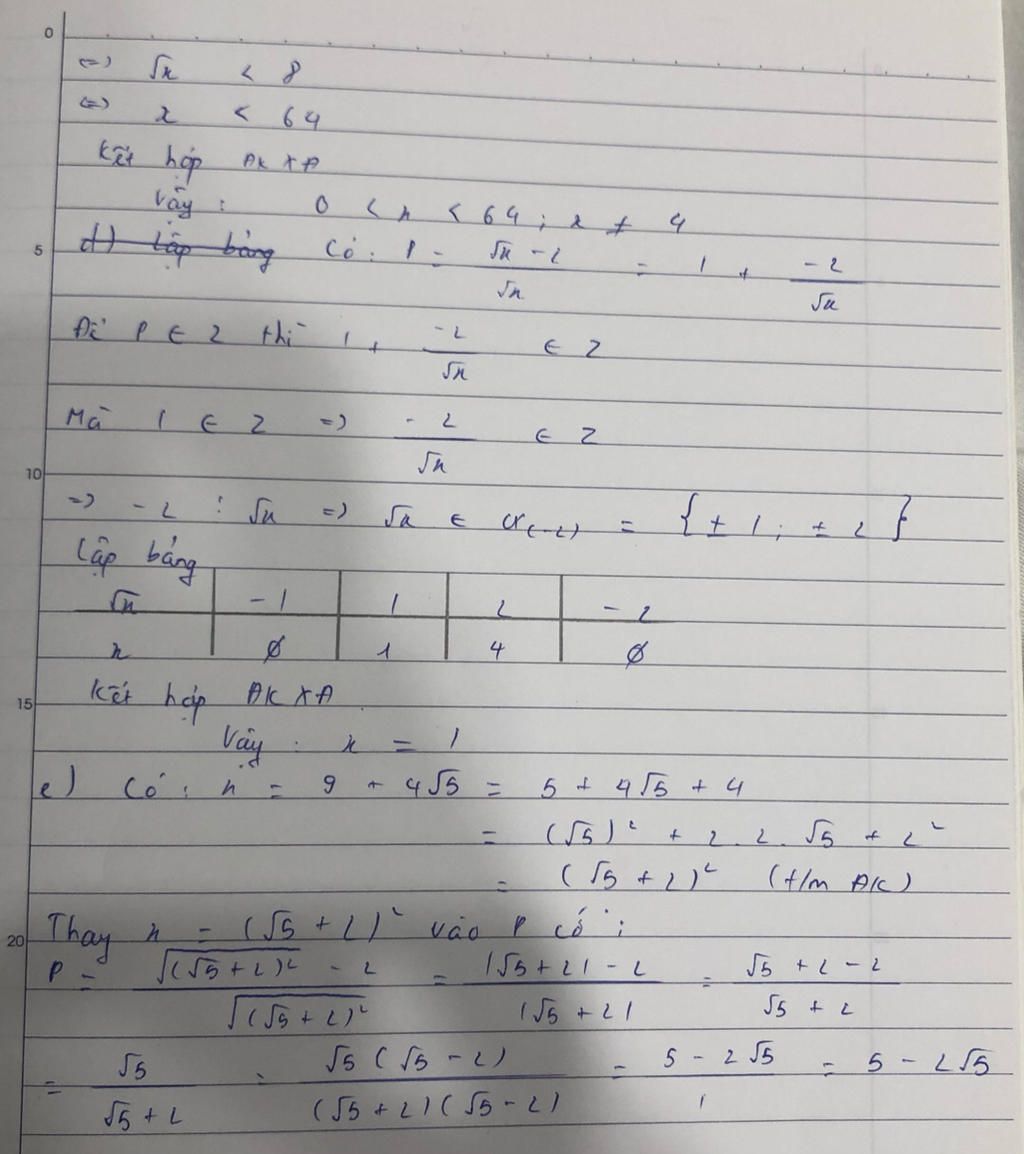 0
<=> √x < 8
<=> x < 64
Kết hợp ĐKXĐ
Vậy : 0 < x < 64 ; x ≠ 4
5
d) Lập bảng Có : P = (√x - 2)/√x = 1 + (-2)/√x
Để P ∈ Z thì 1 + (-2)/√x ∈ Z
Mà 1 ∈ Z => (-2)/√x ∈ Z
10
=> -2 ⋮ √x => √x ∈ Ư(-2) = {±1 ; ±2}
Lập bảng
√x | -1 | 1 | 2 | -2
x | ∅ | 1 | 4 | ∅
15
Kết hợp ĐKXĐ
Vậy : x = 1
e) Có : x = 9 + 4√5 = 5 + 4√5 + 4
= (√5)² + 2.2.√5 + 2²
= (√5 + 2)² (t/m ĐK)
20
Thay x = (√5 + 2)² vào P có :
P = (√((√5 + 2)²) - 2)/√((√5 + 2)²) = (|√5 + 2| - 2)/|√5 + 2| = (√5 + 2 - 2)/(√5 + 2)
= √5/(√5 + 2) = √5(√5 - 2)/((√5 + 2)(√5 - 2)) = (5 - 2√5)/1 = 5 - 2√5